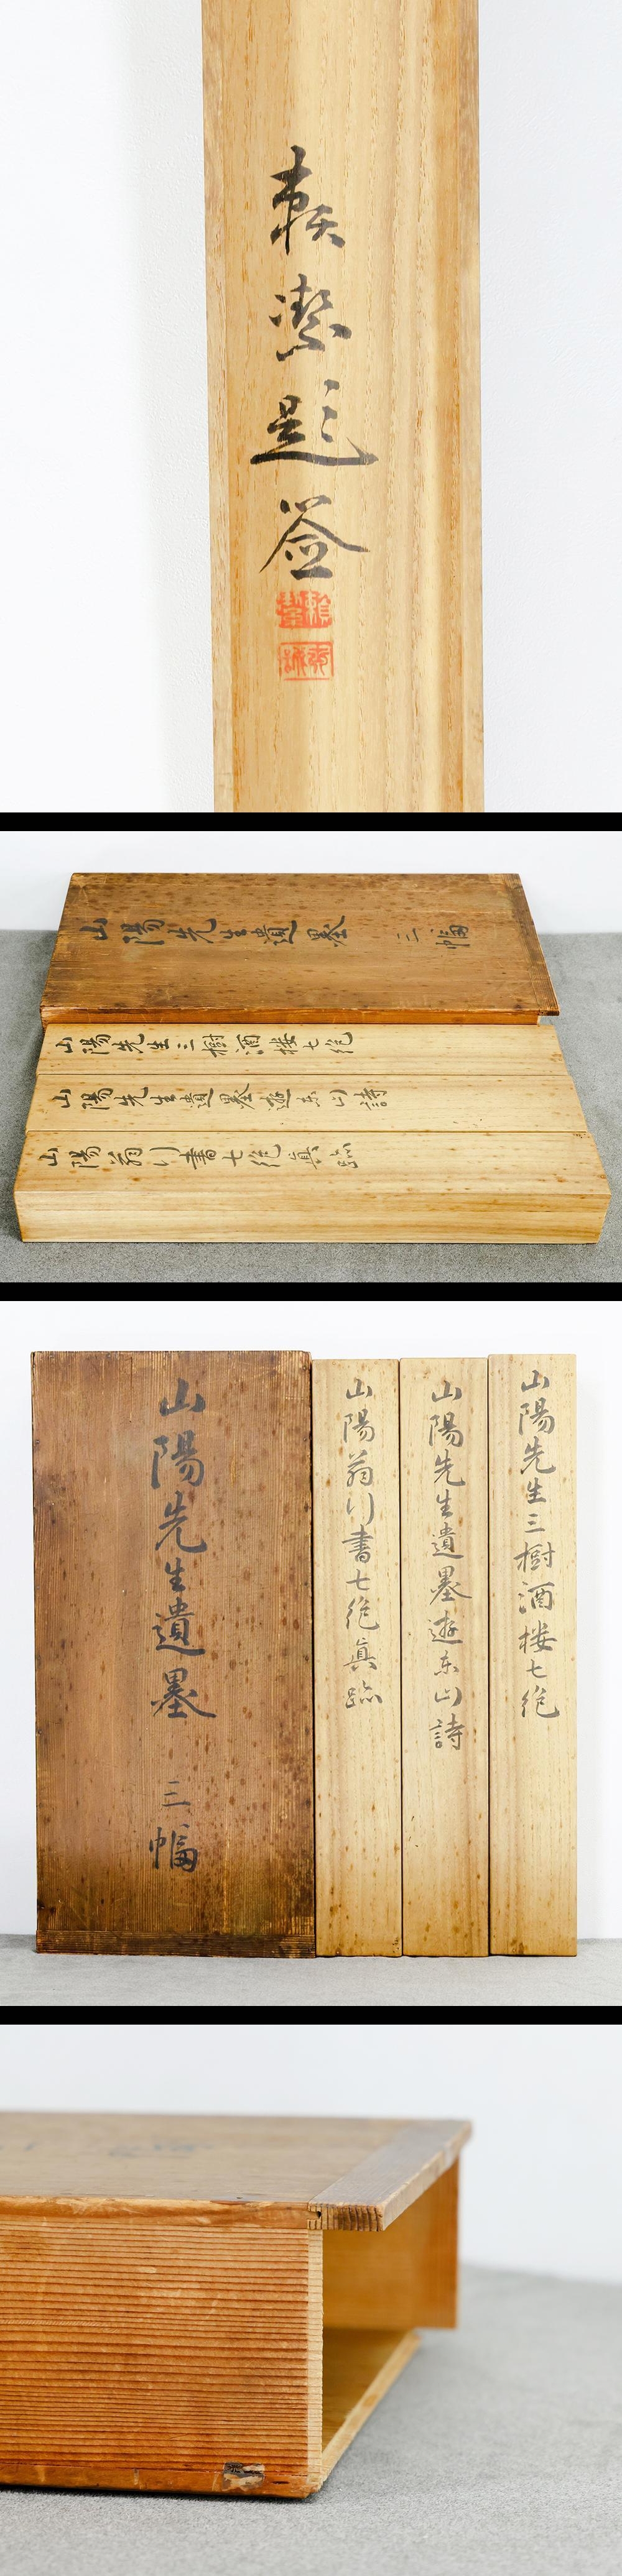 頼潔題簽
山陽先生遺墨 三幅
山陽先生三樹酒楼七絶
山陽先生遺墨遊东山詩
山陽翁行書七绝真跡
山陽先生遺墨 三幅
山陽翁行書七绝真跡
山陽先生遺墨遊东山詩
山陽先生三樹酒楼七絶